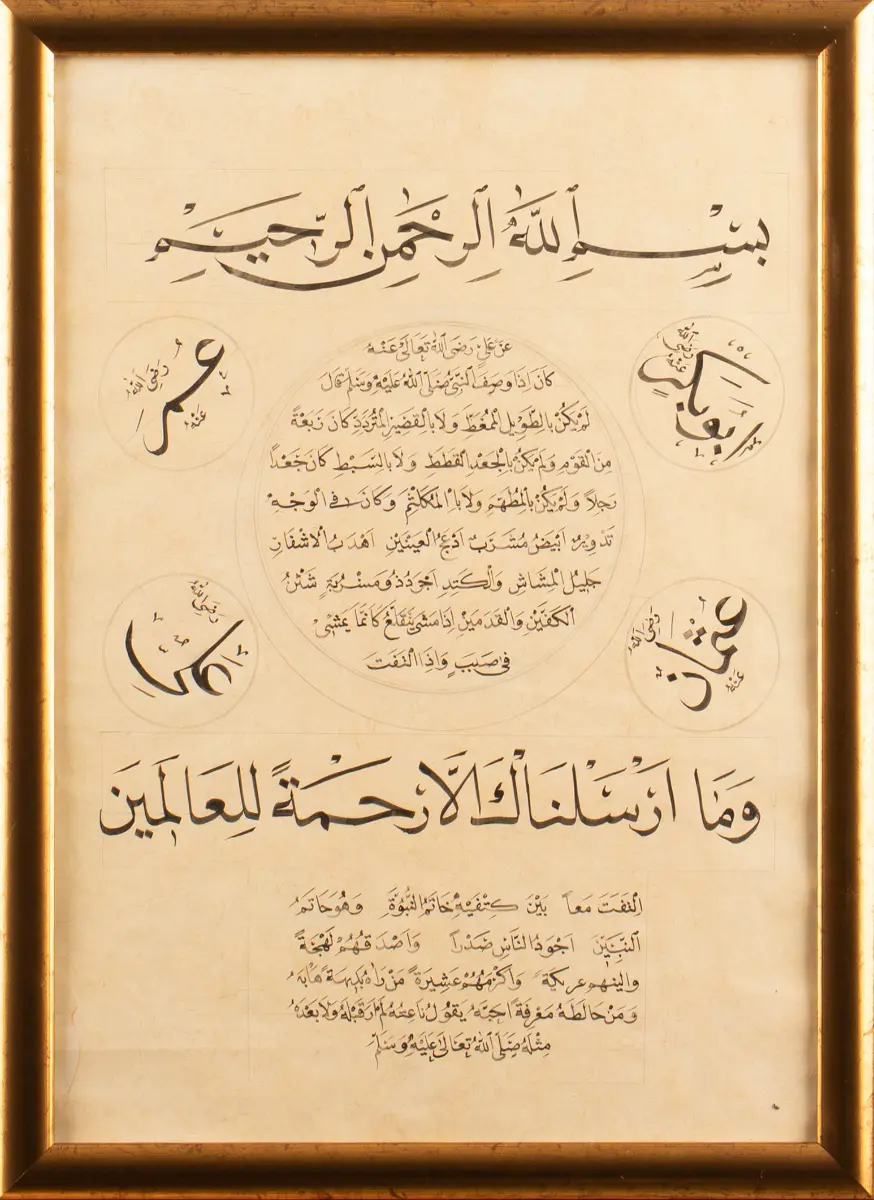 بسم الله الرحمن الرحيم
ابو بكر رضى الله عنه
عمر رضى الله عنه
عن على رضى الله تعالى عنه
كان اذا وصف النبى صلى الله عليه وسلم قال
لم يكن بالطويل الممغط ولا بالقصير المتردد كان ربعة
من القوم ولم يكن بالجعد القطط ولا بالسبط كان جعداً
رجلاً ولم يكن بالمطهم ولا بالمكلثم وكان فى الوجه
تدوير ابيض مشرب ادعج العينين اهدب الاشفار
جليل المشاش والكتد اجرد ذو مسربة شثن
الكفين والقدمين اذا مشى يتقلع كانما يمشى
فى صبب واذا التفت
عثمان رضى الله عنه
على رضى الله
وما ارسلناك الا رحمة للعالمين
التفت معاً بين كتفيه خاتم النبوة وهو خاتم
النبيين اجود الناس صدراً واصدقهم لهجة
والينهم عريكة واكرمهم عشيرة من راه بديهة هابه
ومن خالطه معرفة احبه يقول ناعته لم ار قبله ولا بعده
مثله صلى الله تعالى عليه وسلم